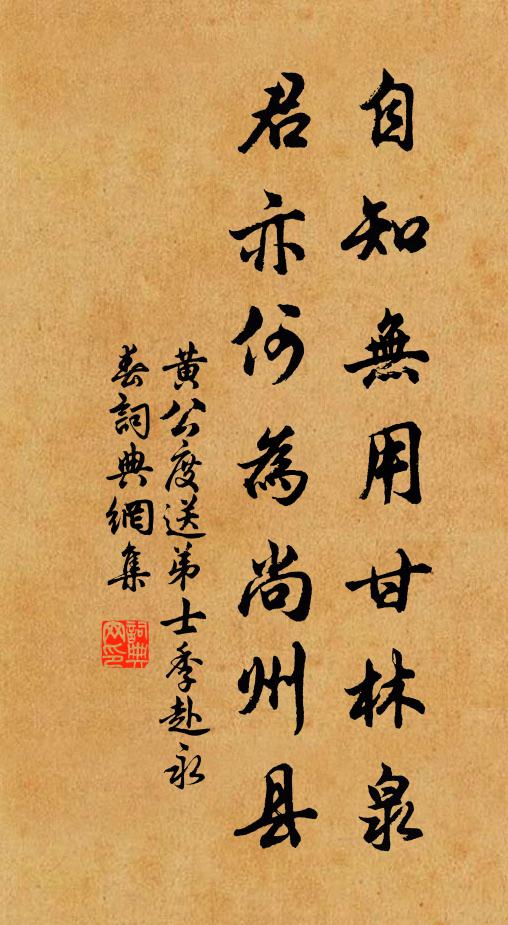 自知無用甘林泉
君亦何為尚州县
黄公度送弟士季赴永
春詞典網集
詞典网印